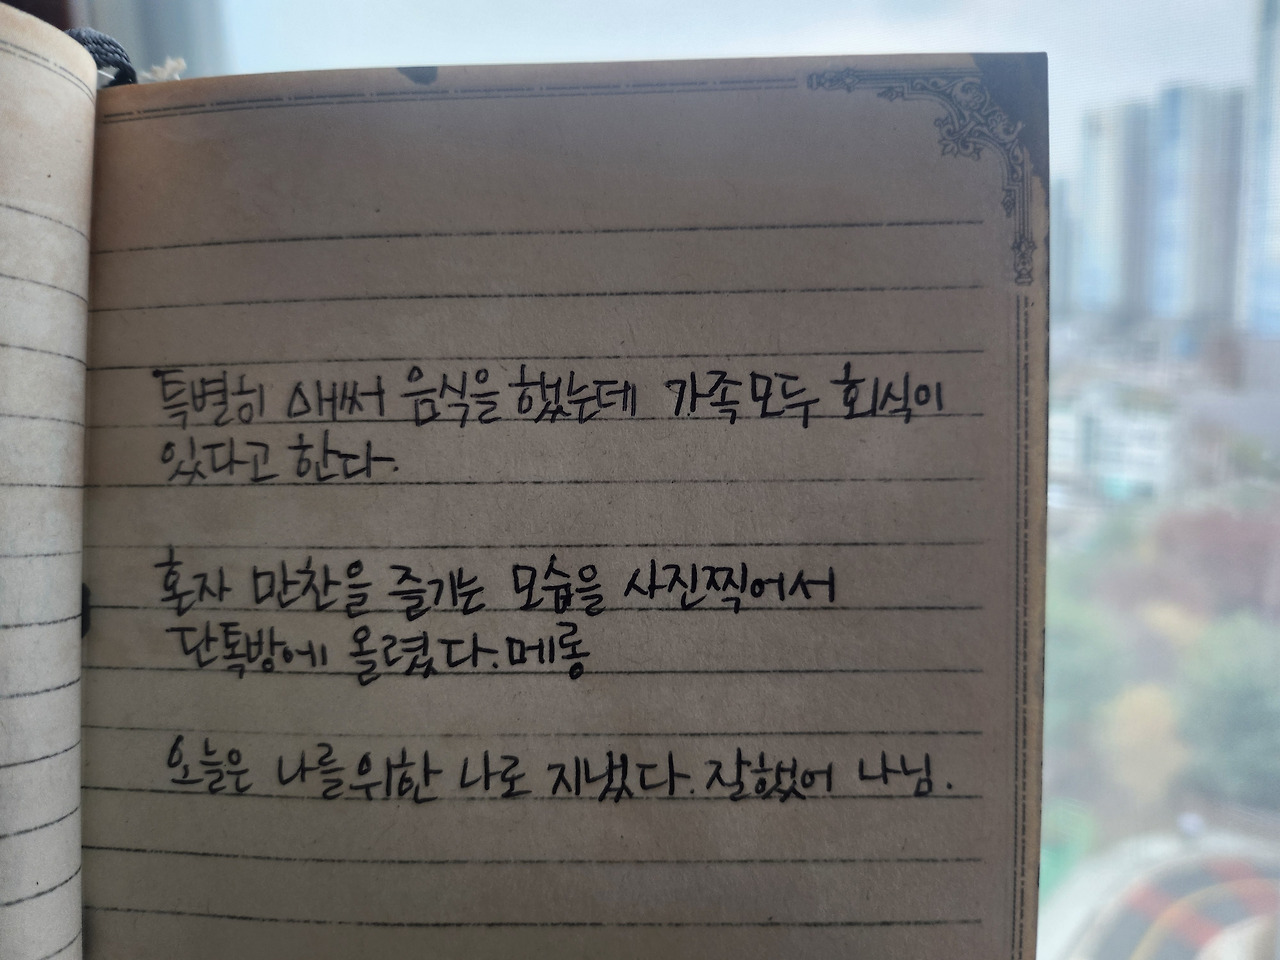 특별히 애써 음식을 했는데 가족모두 회식이
있다고 한다.
혼자 만찬을 즐기는 모습을 사진찍어서
단톡방에 올렸다. 메롱
오늘은 나를위한 나로 지냈다. 잘했어 나님.